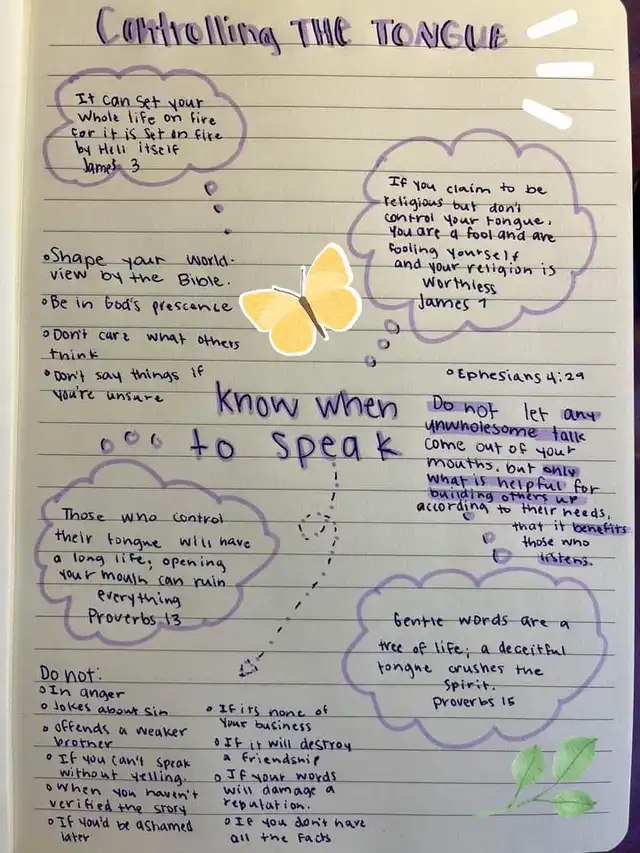 Controlling THE TONGUE
It can set your
whole life on fire
for it is set on fire
by Hell itself
James 3
If you claim to be
religious but don't
control your tongue,
you are a fool and are
fooling yourself
and your religion is
worthless
James 1
Shape your world-
view by the Bible.
Be in God's prescence
Don't care what others
think
Don't say things if
you're unsure
know when
to speak
Ephesians 4:29
Do not let any
unwholesome talk
come out of your
mouths. but only
what is helpful for
building others up
according to their needs,
that it benefits
those who
listens.
Those who control
their tongue will have
a long life; opening
your mouth can ruin
everything
Proverbs 13
Gentle words are a
tree of life; a deceitful
tongue crushes the
Spirit.
Proverbs 15
Do not:
In anger
Jokes about sin
offends a weaker
brother
If you can't speak
without yelling.
When you haven't
verified the story
If you'd be ashamed
later
If its none of
your business
If it will destroy
a friendship
If your words
will damage a
reputation.
If you don't have
all the facts